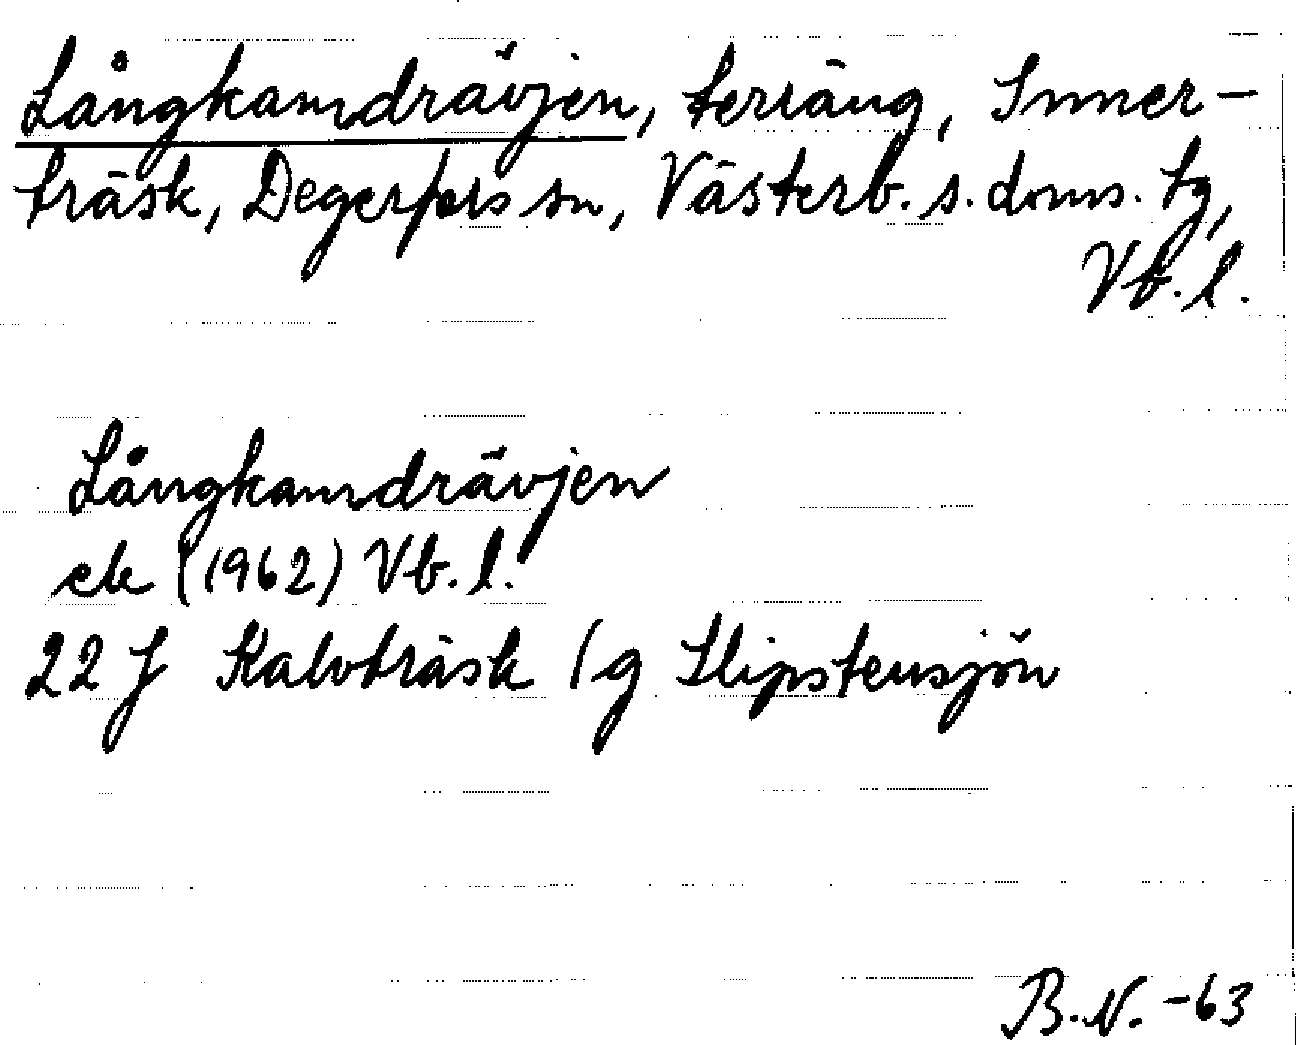 Långkamdrävjen, terräng, Inner-
träsk, Degerfors sn, Västerb. s. doms. tg,
Vb. l.
Långkamdrävjen
ek (1962) Vb. l.
22 J Kalvträsk 1g Slipstensjön
B.N. -63